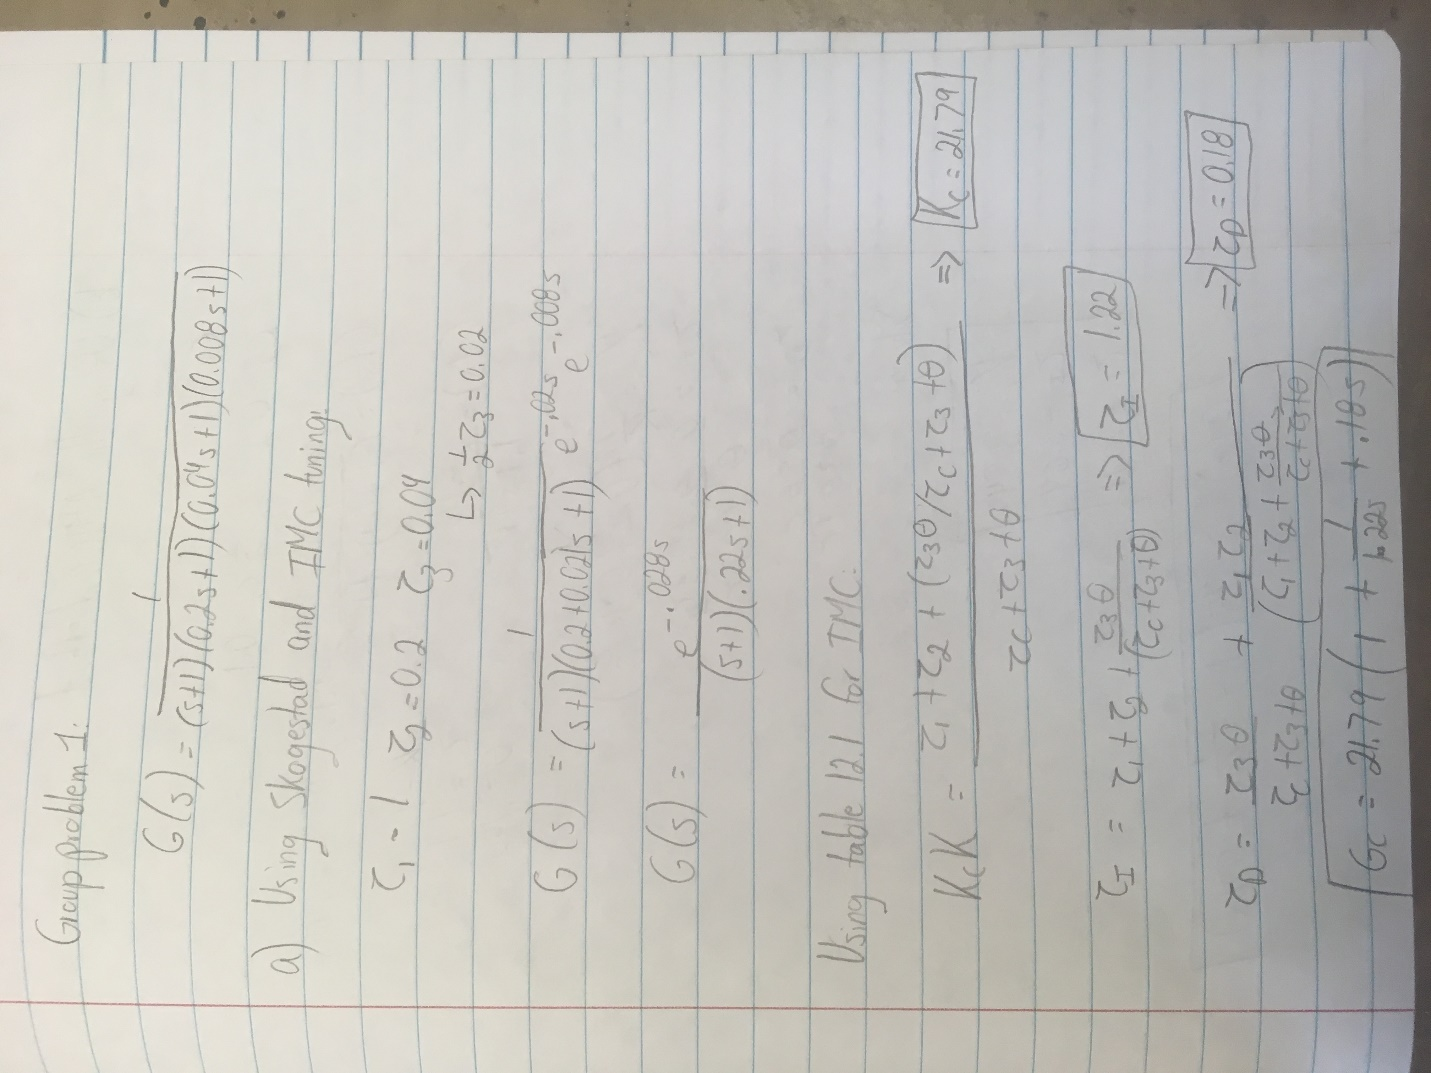 Group problem 1:
G(s) = 1 / (s+1)(0.2s+1)(0.04s+1)(0.008s+1)
a) Using Skogestad and IMC tuning:
τ₁ = 1 τ₂ = 0.2 τ₃ = 0.04
↳ ½τ₃ = 0.02
G(s) = 1 / (s+1)(0.2+0.02)s+1) e^-.02s e^-.008s
G(s) = e^-.028s / (s+1)(.22s+1)
Using table 12.1 for IMC:
KcK = τ₁ + τ₂ + (τ₃θ/τc+τ₃+θ) / τc+τ₃+θ => Kc = 21.79
τI = τ₁ + τ₂ + τ₃θ / (τc+τ₃+θ) => τI = 1.22
τD = τ₃θ / τc+τ₃+θ + τ₁τ₂ / (τ₁+τ₂+ τ₃θ / τc+τ₃+θ) => τD = 0.18
Gc = 21.79 (1 + 1 / 1.22s + .18s)